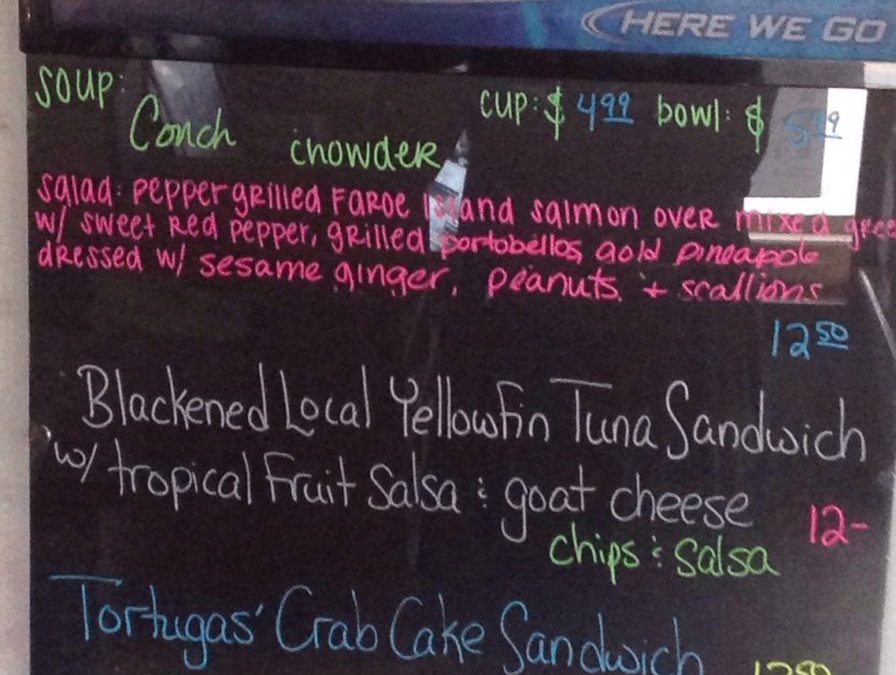 HERE WE GO
soup: cup: $ 4.99 bowl: $ 5.99
Conch chowder
salad: pepper grilled Faroe Island salmon over mixed gree
w/ sweet red pepper, grilled portobellos, gold pineapple
dressed w/ sesame ginger, peanuts, + scallions
12 50
Blackened Local Yellowfin Tuna Sandwich
w/ tropical Fruit Salsa & goat cheese
12-
chips & salsa
Tortugas' Crab Cake Sandwich
12 50